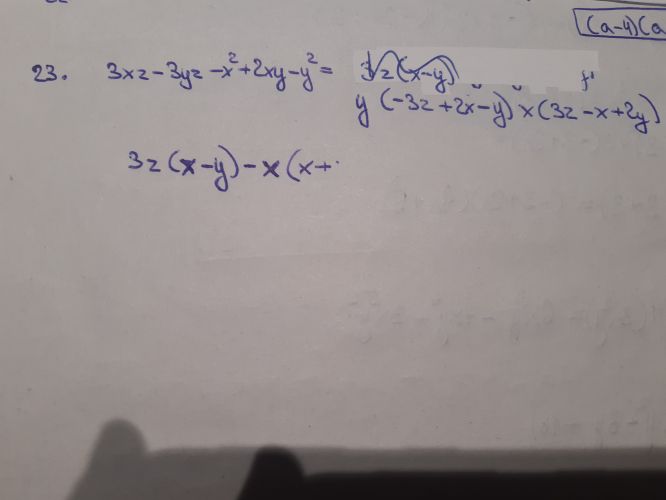 (a-4)(a
23. 3xz-3yz-x²+2xy-y²= 3z(x-y)
y(-3z+2x-y) x(3z-x+2y)
3z(x-y)-x(x+